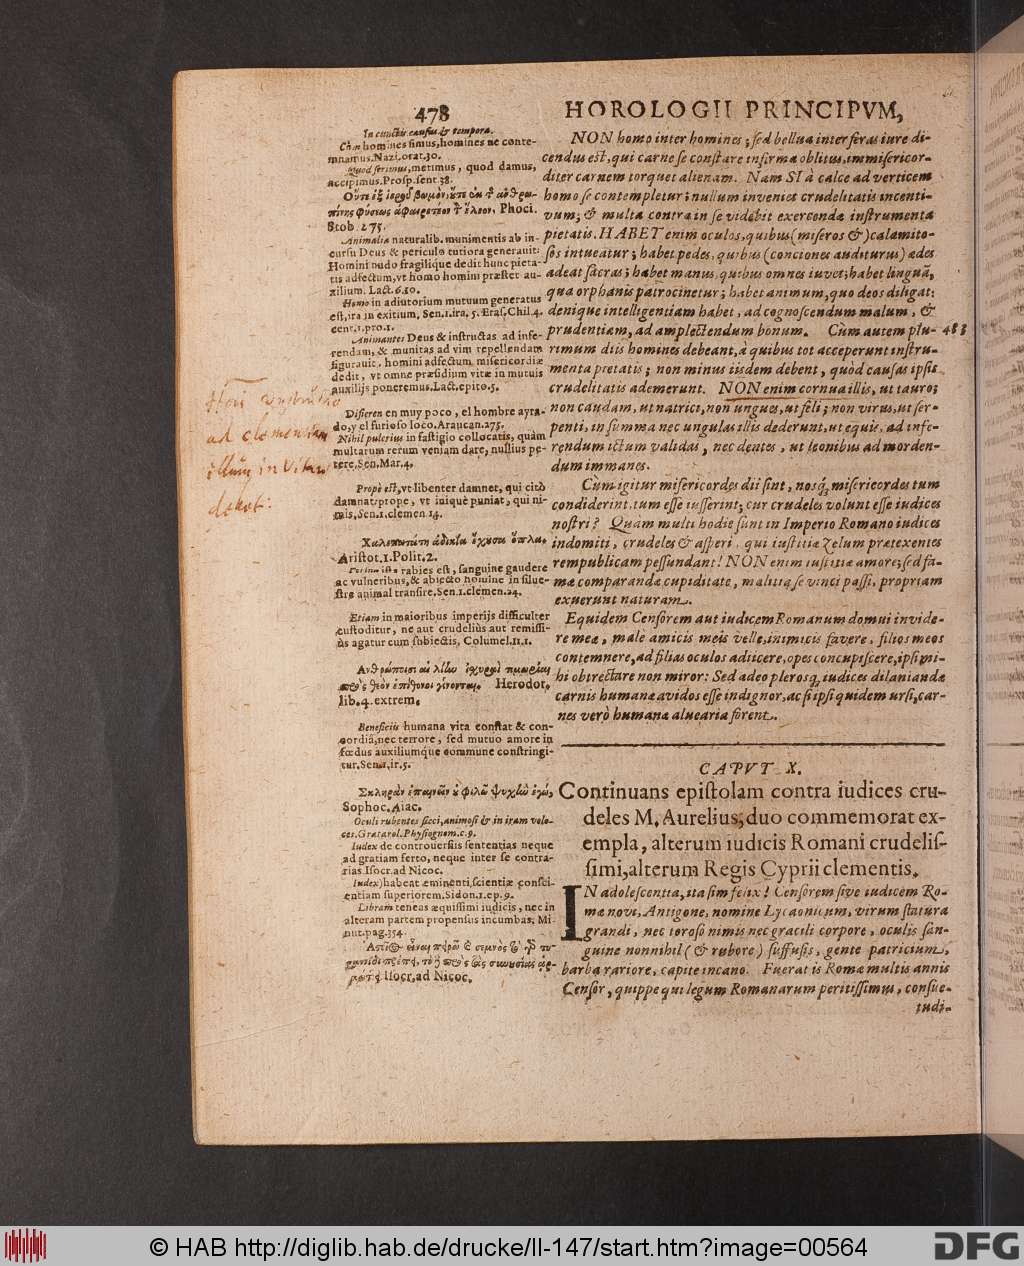 478
HOROLOGII PRINCIPVM,
In cunctis causis & tempora.
Cùm homines simus, homines ne conte-
mnamus. Nazi. orat. 30.
Quod serimus, metimus, quod damus,
accipimus. Prosp. sent. 38.
Phoci.
Stob. 275.
Animalia naturalib. munimentis ab in-
cursu Deus & periculo tutiora generavit:
Homini nudo fragilique dedit hunc pieta-
tis adfectum, vt homo homini præstet au-
xilium. Lact. 6. 10.
Homo in adiutorium mutuum generatus
est, ira in exitium, Sen. 1. ira, 5. Eras. Chil. 4.
cent. 1. pro. 1.
Animantes Deus & instructas ad infe-
rendam, & munitas ad vim repellendam
figuravit, homini adfectum misericordiæ
dedit, vt omne præsidium vitæ in mutuis
auxilijs poneremus. Lact. epito. 5.
Difieren en muy poco, el hombre ayra-
do, y el furioso loco. Araucan. 275.
Nihil pulcrius in fastigio collocatis, quàm
multarum rerum veniam dare, nullius pe-
tere. Sen. Mar. 4.
Propè est, vt libenter damnet, qui citò
damnat: prope, vt iniquè puniat, qui ni-
mis. Sen. 1. clemen. 14.
Χαλεπωτάτη ἀδικία ἔχουσα ὅπλα.
Aristot. 1. Polit. 2.
Ferina ista rabies est, sanguine gaudere
ac vulneribus, & abiecto homine in silue-
stre animal transire. Sen. 1. clemen. 24.
Etiam in maioribus imperijs difficulter
custoditur, ne aut crudeliùs aut remissi-
ùs agatur cum subiectis, Columel. 11. 1.
Herodot.
lib. 4. extrem.
Beneficiis humana vita constat & con-
cordiâ, nec terrore, sed mutuo amore in
fœdus auxiliumque commune constringi-
tur. Sen. 1. ir. 5.
Sophoc. Aiac.
Oculi rubentes sicci, animosi & in iram velo-
ces. Gratarol. Physiognom. c. 9.
Iudex de controversiis sententias neque
ad gratiam ferto, neque inter se contra-
rias. Isocr. ad Nicoc.
(Iudex) habeat æminenti scientiæ consci-
entiam superiorem. Sidon. 1. ep. 9.
Libram teneas æquissimi iudicis, nec in
alteram partem propensius incumbas. Mi-
nut. pag. 354.
Isocr. ad Nicoc.
ad clementiam
NON homo inter homines; sed bellua inter feras iure di-
cendus est, qui carne se constare infirma oblitus, immisericor-
diter carnem torquet alienam. Nam SI à calce ad verticem
homo se contempletur; nullum inveniet crudelitatis incenti-
vum; & multa contra in se videbit exercendæ instrumenta
pietatis. HABET enim oculos, quibus (miseros &) calamito-
sos intueatur; habet pedes, quibus (conctones auditurus) ædes
adeat sacras; habet manus, quibus omnes iuvet; habet linguã,
qua orphanis patrocinetur; habet animum, quo deos diligat:
denique intelligentiam habet, ad cognoscendum malum, &
prudentiam, ad amplectendum bonum. Cùm autem plu- 483
rimum diis homines debeant, à quibus tot acceperunt instru-
menta pietatis; non minus iisdem debent, quòd causas ipsis
crudelitatis ademerunt. NON enim cornua illis, ut tauro;
non caudam, ut natrici, non ungues, ut feli; non virus, ut ser-
penti, in summa nec ungulas illis dederunt, ut equis, ad infe-
rendum ictum validas, nec dentes, ut leonibus ad morden-
dum immanes.
Cùm igitur misericordes dii sint, nosq́ misericordes tum
condiderint, tum esse iusserint; cur crudeles volunt esse iudices
nostri? Quàm multi hodie sunt in Imperio Romano iudices
indomiti, crudeles & asperi, qui iustitiæ zelum prætexentes
rempublicam pessundant! NON enim iustitiæ amore; sed fa-
mæ comparandæ cupiditate, malitia se vinci passi, propriam
exuerunt naturam.
Equidem Censorem aut iudicem Romanum domui invide-
re meæ, male amicis meis velle, inimicis favere, filios meos
contemnere, ad filias oculos adiicere, opes concupiscere, ipsi mi-
hi obtrectare non miror: Sed adeo plerosq́, iudices dilaniandæ
carnis humanæ avidos esse indignor, ac si ipsi quidem ursi, car-
nes verò humanæ alvearia forent.
CAPVT X.
Continuans epistolam contra iudices cru-
deles M. Aurelius, duo commemorat ex-
empla, alterum iudicis Romani crudelis-
simi, alterum Regis Cyprii clementis.
IN adolescentia, ita sim felix! Censorem sive iudicem Ro-
mæ novi, Antigone, nomine Lycaonicum, virum statura
grandi, nec toroso nimis nec gracili corpore, oculis san-
guine nonnihil (& rubore) suffusis, gente patricium,
barba rariore, capite incano. Fuerat is Romæ multis annis
Censor, quippe qui legum Romanarum peritissimus, consue-
tudi-
© HAB http://diglib.hab.de/drucke/ll-147/start.htm?image=00564
DFG